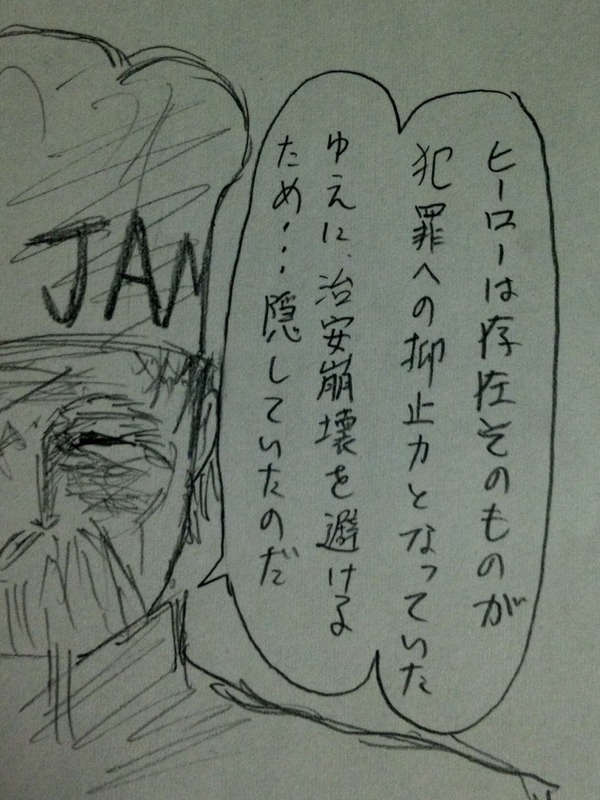 ヒーローは存在そのものが
犯罪への抑止力となっていた
ゆえに、治安崩壊を避ける
ため・・・隠していたのだ
JAM